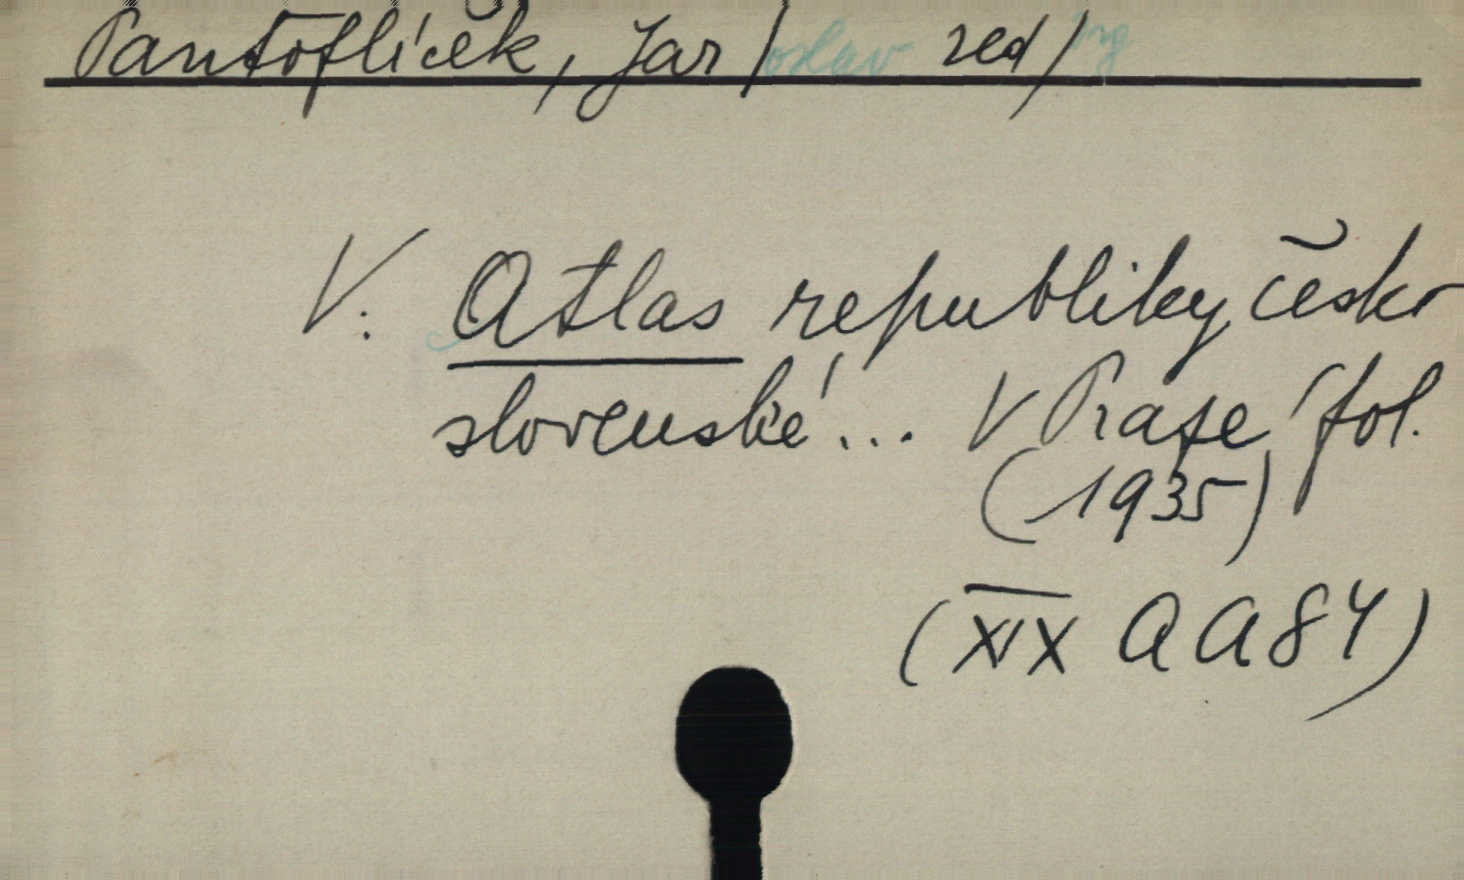 Pantoflíček, Jar/oslav red/
V. Atlas republiky česko
slovenské... V Praze, fol.
(1935)
(XIX A A 84)